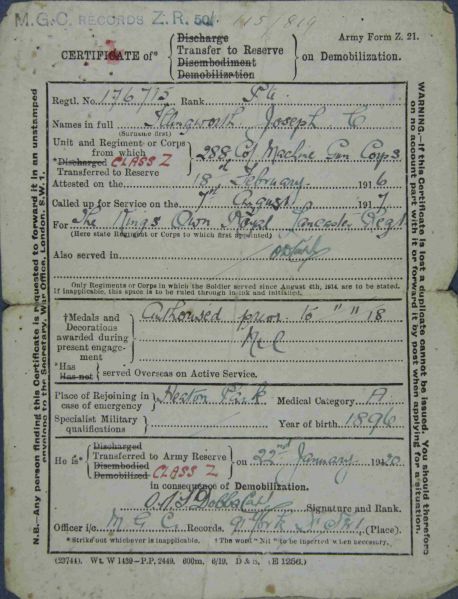 M.G.C. RECORDS Z.R. 50/ 115/819
Army Form Z. 21.
CERTIFICATE of* Discharge
Transfer to Reserve
Disembodiment
Demobilization
on Demobilization.
Regtl. No. 176715 Rank Pte
Names in full Illingworth Joseph C
(Surname first)
Unit and Regiment or Corps
from which 288 Coy Machine Gun Corps
*Discharged CLASS Z
Transferred to Reserve
Attested on the 18th February 1916
Called up for Service on the 7th August 1917
For The Kings Own Royal Lancaster Regt
(Here state Regiment or Corps to which first appointed)
Also served in
Only Regiments or Corps in which the Soldier served since August 4th, 1914 are to be stated.
If inapplicable, this space is to be ruled through in ink and initialled.
†Medals and
Decorations
awarded during
present engage-
ment
Authorised prior to " " 18
Nil
*Has
Has not
served Overseas on Active Service.
Place of Rejoining in
case of emergency Heaton Park Medical Category A
Specialist Military
qualifications Year of birth 1896
He is* Discharged
Transferred to Army Reserve
Disembodied
Demobilized CLASS Z
on 22nd January 1920
in consequence of Demobilization.
Signature and Rank.
Officer i/c M.G.C. Records. (Place).
*Strike out whichever is inapplicable. †The word "Nil" to be inserted when necessary.
(23744). Wt. W 1489—P.P. 2449. 600m. 6/19. D & S. (E 1256.)
N.B.—Any person finding this Certificate is requested to forward it in an unstamped
envelope to the Secretary, War Office, London, S.W. 1.
WARNING.—If this Certificate is lost a duplicate cannot be issued. You should therefore
on no account part with it or forward it by post when applying for a situation.